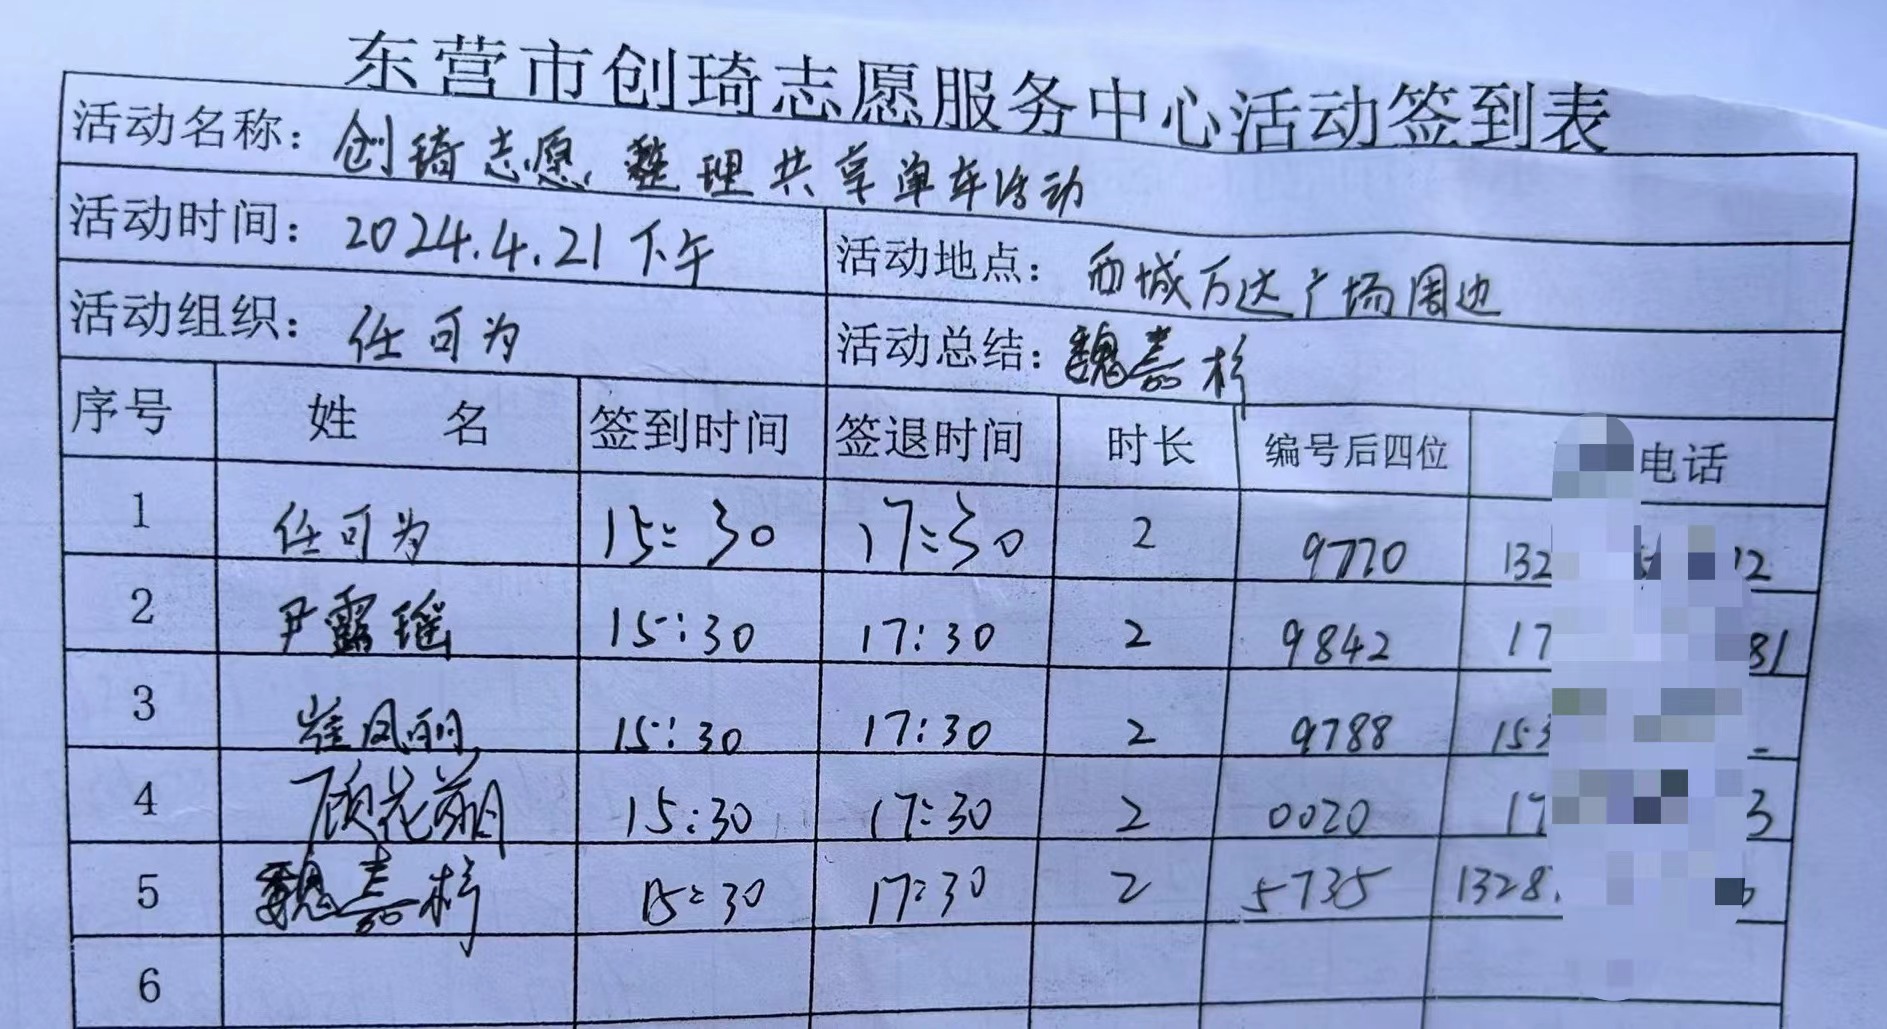 东营市创琦志愿服务中心活动签到表
活动名称: 创琦志愿整理共享单车活动
活动时间: 2024.4.21下午 活动地点: 西城万达广场周边
活动组织: 任可为 活动总结: 魏嘉杉
序号 姓 名 签到时间 签退时间 时长 编号后四位 电话
1 任可为 15:30 17:30 2 9770 132
2 尹露瑶 15:30 17:30 2 9842 17 81
3 崔凤丽 15:30 17:30 2 9788 153
4 顾花翩 15:30 17:30 2 0020 17 3
5 魏嘉杉 15:30 17:30 2 5735 1328
6